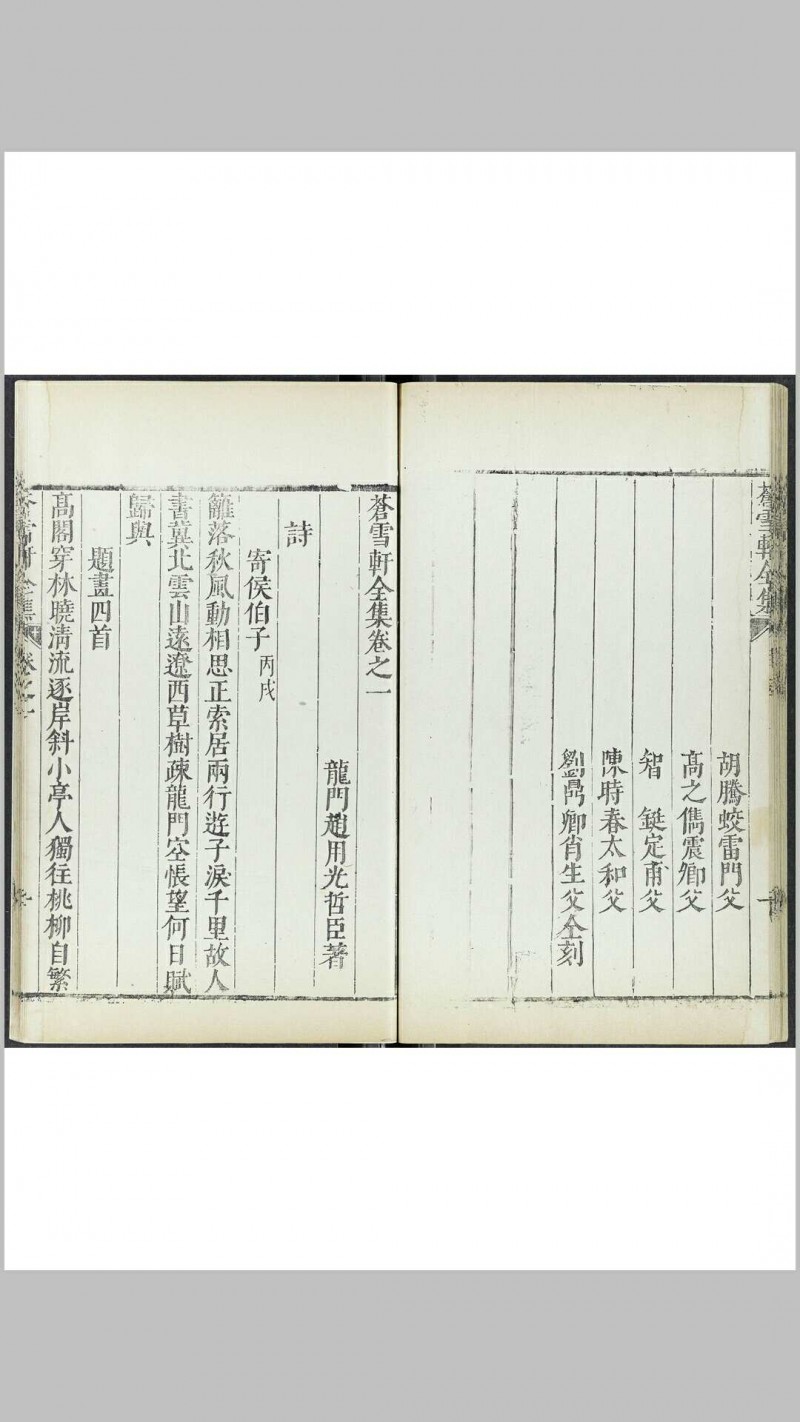 蒼雪軒全集
胡騰蛟雷門父
高之儁震卿父
智 鋌定甫父
陳時春太和父
劉鼎卿肖生父仝刻
蒼雪軒全集卷之一
龍門趙用光哲臣著
詩
寄侯伯子 丙戌
籬落秋風動相思正索居兩行遊子淚千里故人
書冀北雲山遠遼西草樹疎龍門空悵望何日賦
歸與
題畫四首
高閣穿林曉清流逐岸斜小亭人獨往桃柳自繁
蒼雪軒全集 卷之一